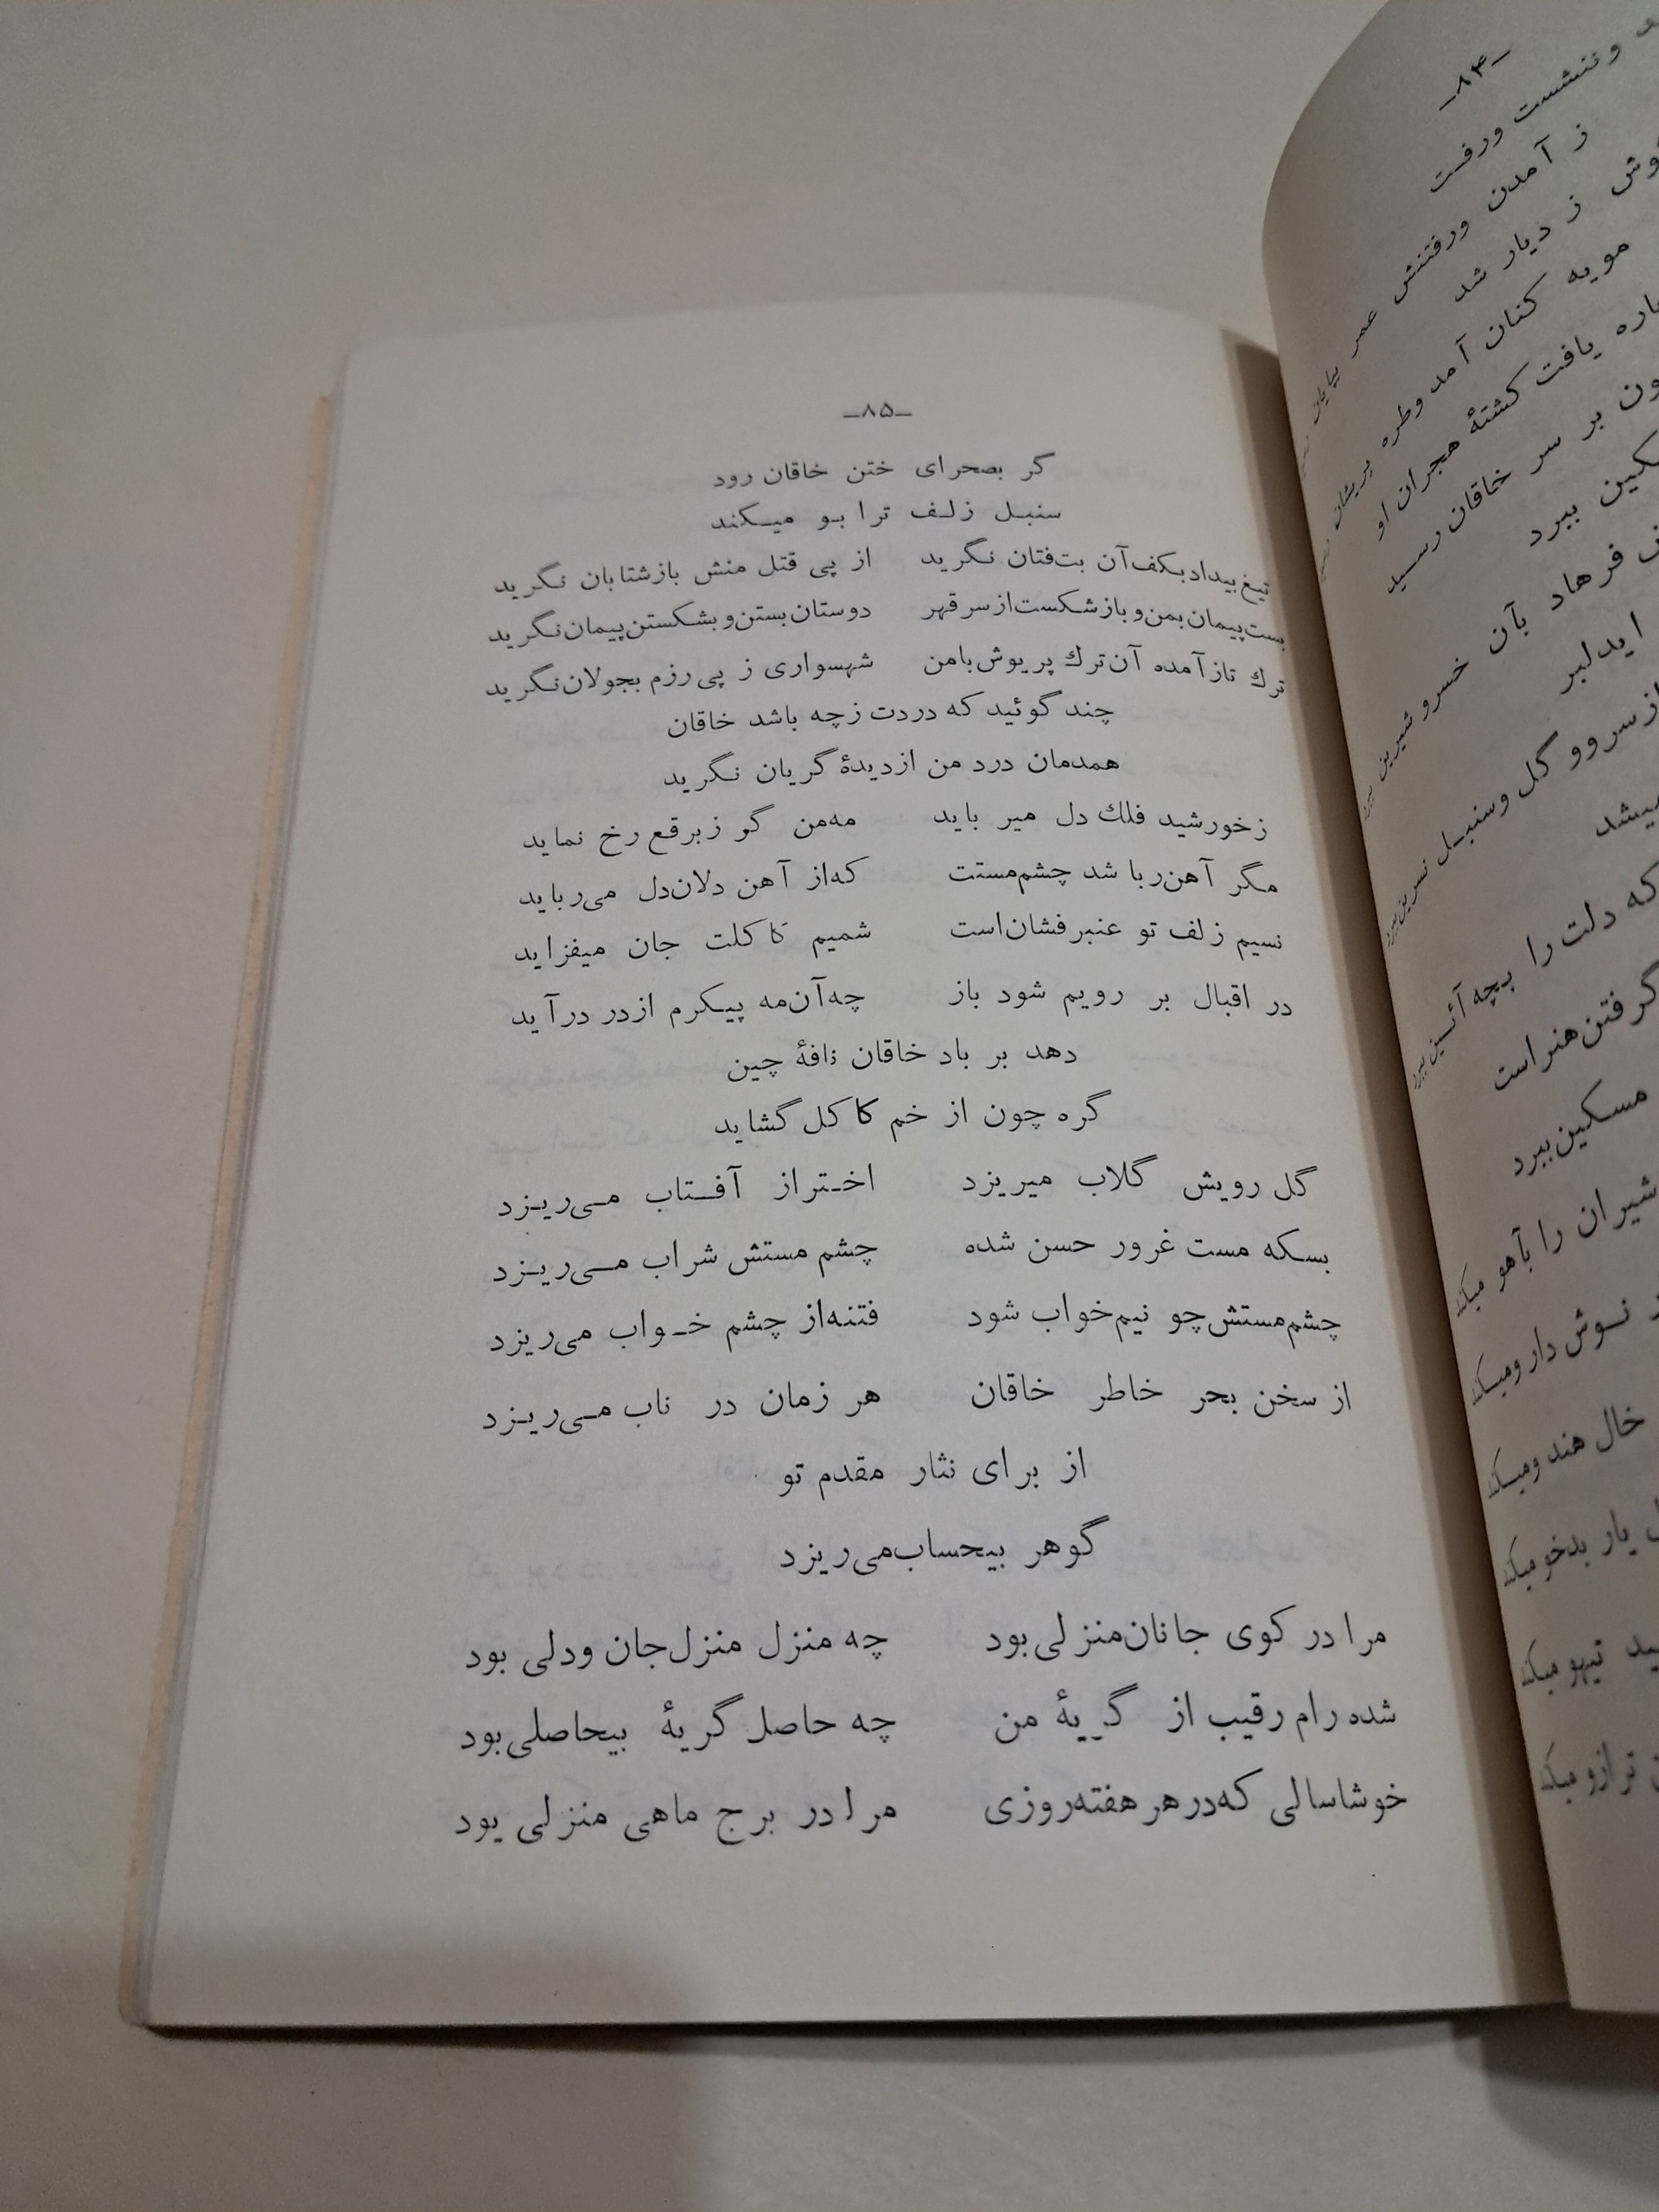 ـ۸۵ـ
گر بصحرای ختن خاقان رود
سنبل زلف ترا بو میکند
تیغ بیداد بکف آن بت فتان نگرید از پی قتل منش باز شتابان نگرید
بست پیمان بمن و باز شکست از سر قهر دوستان بستن و بشکستن پیمان نگرید
ترك تاز آمده آن ترك پریوش بامن شهسواری ز پی رزم بجولان نگرید
چند گوئید که دردت زچه باشد خاقان
همدمان درد من از دیدهٔ گریان نگرید
زخورشید فلك دل میر باید مه من گر زبرقع رخ نماید
مگر آهن ربا شد چشم مستت که از آهن دلان دل می رباید
نسیم زلف تو عنبر فشان است شمیم کاکلت جان میفزاید
در اقبال بر رویم شود باز چه آن مه پیکرم از در درآید
دهد بر باد خاقان نافهٔ چین
گره چون از خم کاکل گشاید
گل رویش گلاب میریزد اختر از آفتاب می ریزد
بسکه مست غرور حسن شده چشم مستش شراب می ریزد
چشم مستش چو نیم خواب شود فتنه از چشم خواب می ریزد
از سخن بحر خاطر خاقان هر زمان در ناب می ریزد
از برای نثار مقدم تو
گوهر بیحساب می ریزد
مرا در کوی جانان منزلی بود چه منزل منزل جان ودلی بود
شده رام رقیب از گریهٔ من چه حاصل گریهٔ بیحاصلی بود
خوشا سالی که در هر هفته روزی مرا در برج ماهی منزلی بود
ـ۸۴ـ
وننشست ورفت
ز آمدن ورفتنش عمر بپایان
ز دیار شد
مویه کنان آمد وطره پریشان
یافت کشتهٔ هجران او
بر سر خاقان رسید
ببرد
فرهاد بآن خسرو شیرین ببرد
ایدلبر
ازسرو و گل وسنبل نسرین ببرد
میشد
که دلت را بچه آئین ببرد
گرفتن هنر است
مسکین ببرد
شیران را بآهو میکند
نوش دارو میکند
خال هندو میکند
یار بدخو میکند
تیهو میکند
ترازو میکند